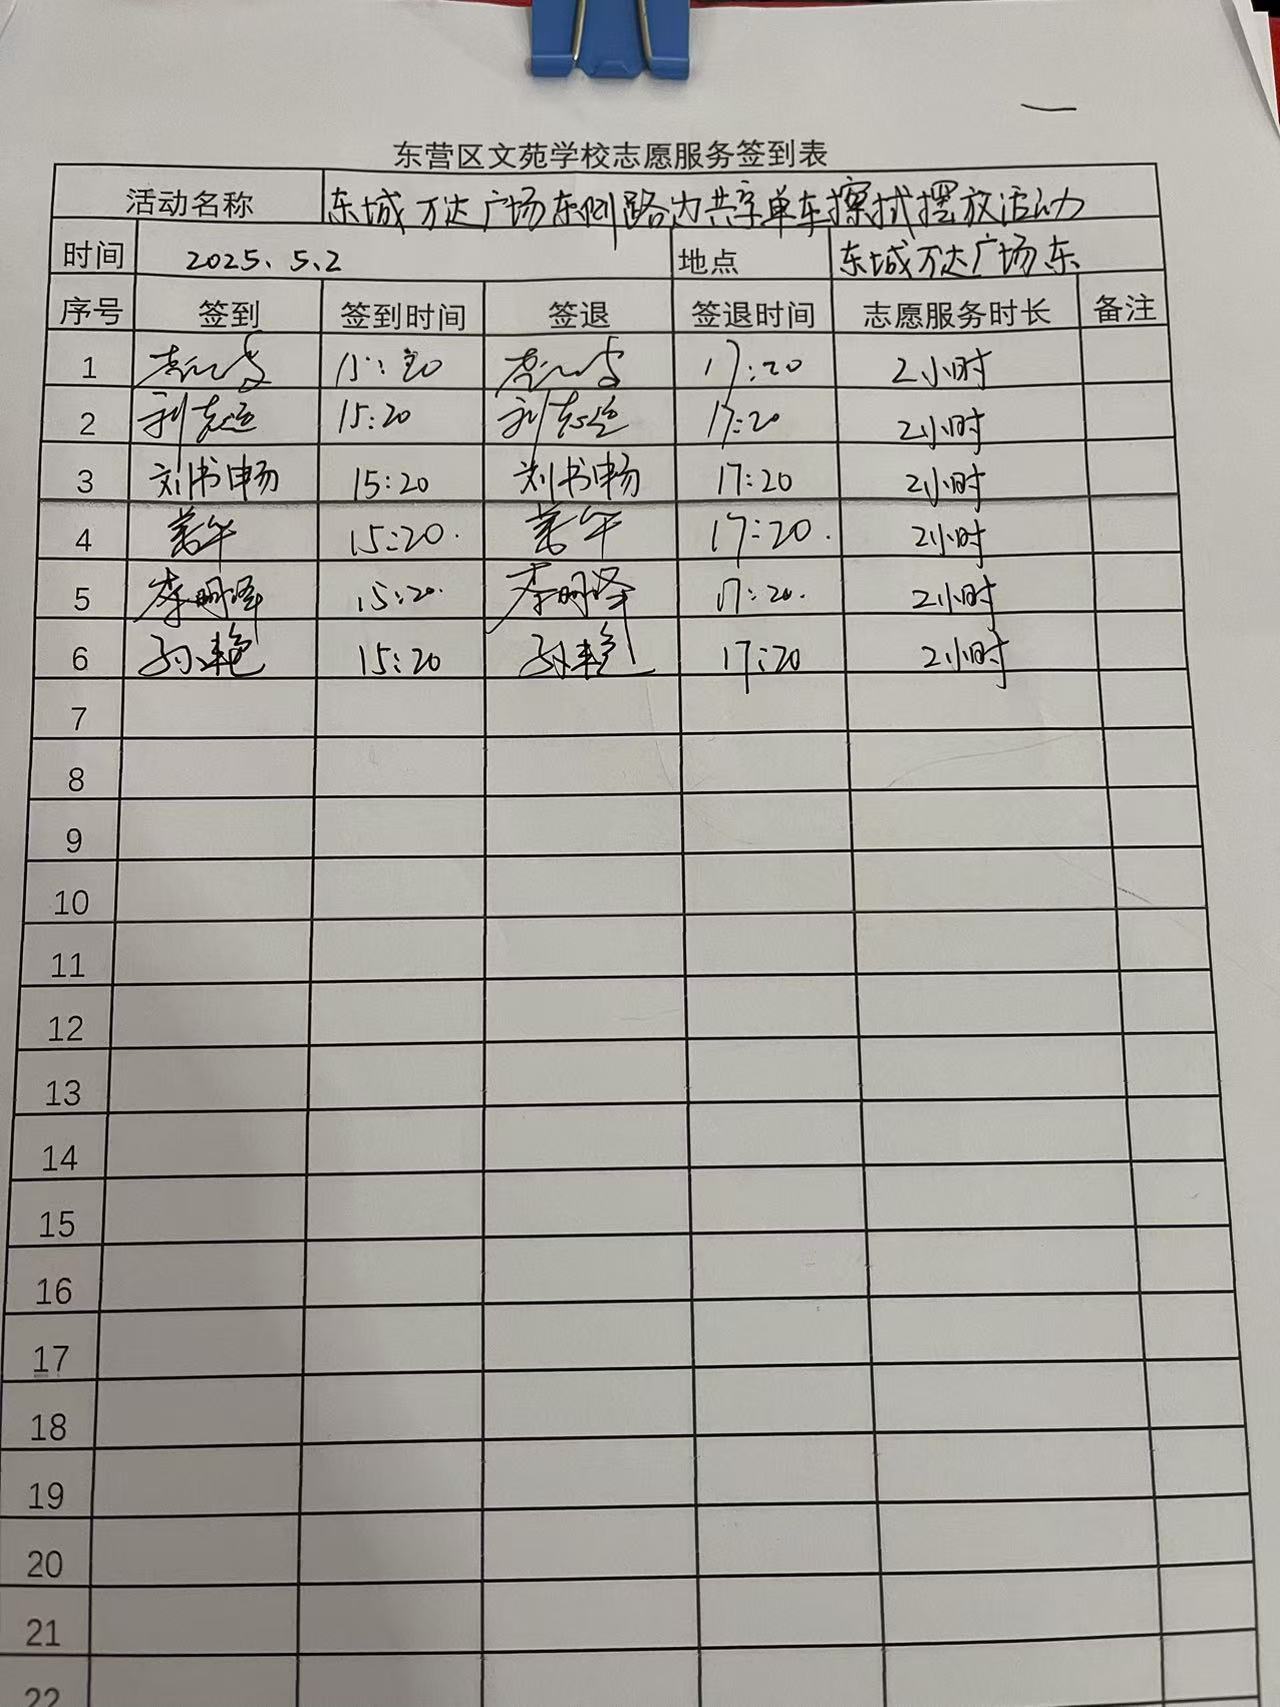 东营区文苑学校志愿服务签到表
活动名称 东城万达广场东侧路边共享单车擦拭摆放活动
时间 2025、5、2 地点 东城万达广场东
序号 签到 签到时间 签退 签退时间 志愿服务时长 备注
1 15:20 17:20 2小时
2 15:20 17:20 2小时
3 刘书畅 15:20 刘书畅 17:20 2小时
4 15:20. 17:20. 2小时
5 李明泽 15:20. 李明泽 17:20. 2小时
6 15:20 17:20 2小时
7
8
9
10
11
12
13
14
15
16
17
18
19
20
21
22